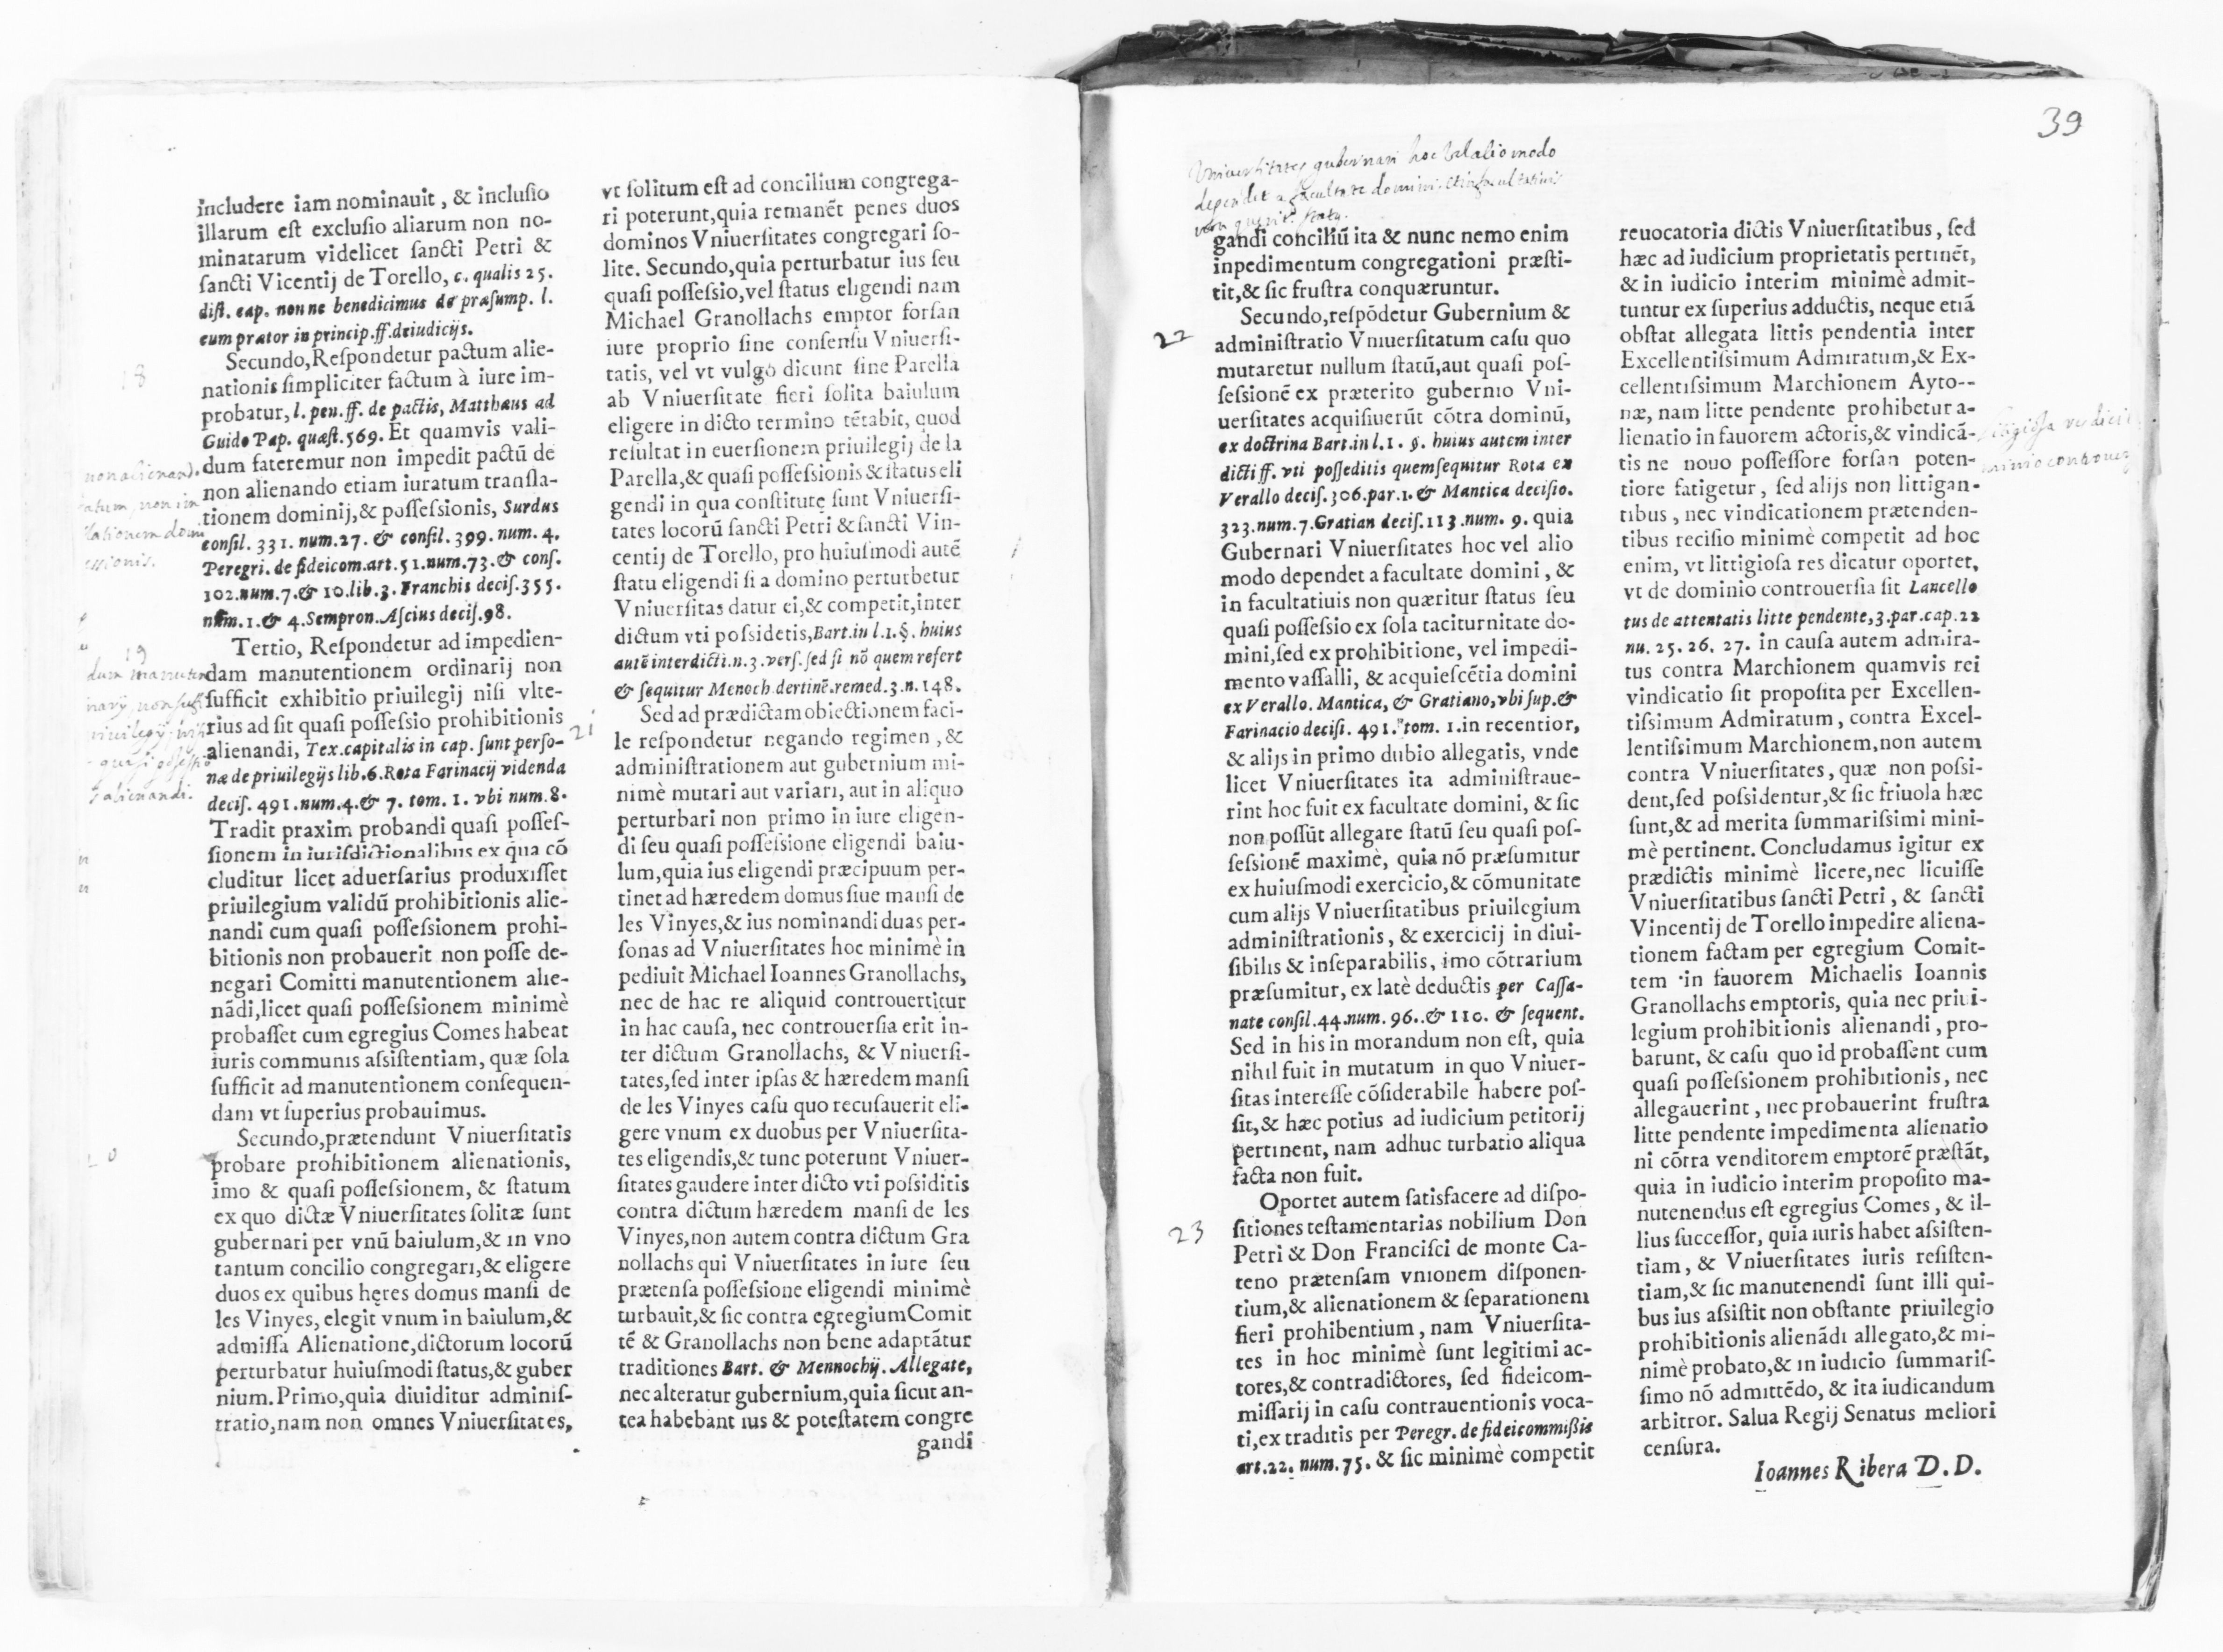 includere iam nominauit, & inclusio
illarum est exclusio aliarum non no-
minatarum videlicet sancti Petri &
sancti Vicentij de Torello, c. qualis 25.
dist. cap. nonne benedicimus de præsump. l.
cum prætor in princip. ff. de iudicijs.
18
Secundo, Respondetur pactum alie-
nationis simpliciter factum à iure im-
probatur, l. pen. ff. de pactis, Matthæus ad
Guido Pap. quæst. 569. Et quamvis vali-
dum fateremur non impedit pactũ de
non alienando etiam iuratum transla-
tionem dominij, & possessionis, Surdus
consil. 331. num. 27. & consil. 399. num. 4.
Peregri. de fideicom. art. 51. num. 73. & cons.
102. num. 7. & 10. lib. 3. Franchis decis. 355.
num. 1. & 4. Sempron. Ascius decis. 98.
19
Tertio, Respondetur ad impedien-
dam manutentionem ordinarij non
sufficit exhibitio priuilegij nisi vlte-
rius ad sit quasi possessio prohibitionis
alienandi, Tex. capitalis in cap. sunt perso-
næ de priuilegijs lib. 6. Rota Farinacij videnda
decis. 491. num. 4. & 7. tom. 1. vbi num. 8.
Tradit praxim probandi quasi posses-
sionem in iurisdictionalibus ex qua cõ
cluditur licet aduersarius produxisset
priuilegium validũ prohibitionis alie-
nandi cum quasi possessionem prohi-
bitionis non probauerit non posse de-
negari Comitti manutentionem alie-
nãdi, licet quasi possessionem minimè
probasset cum egregius Comes habeat
iuris communis assistentiam, quæ sola
sufficit ad manutentionem consequen-
dam vt superius probauimus.
Secundo, prætendunt Vniuersitatis
probare prohibitionem alienationis,
imo & quasi possessionem, & statum
ex quo dictæ Vniuersitates solitæ sunt
gubernari per vnũ baiulum, & in vno
tantum concilio congregari, & eligere
duos ex quibus hęres domus mansi de
les Vinyes, elegit vnum in baiulum, &
admissa Alienatione, dictorum locorũ
perturbatur huiusmodi status, & guber
nium. Primo, quia diuiditur adminis-
tratio, nam non omnes Vniuersitates,
vt solitum est ad concilium congrega-
ri poterunt, quia remanẽt penes duos
dominos Vniuersitates congregari so-
lite. Secundo, quia perturbatur ius seu
quasi possessio, vel status eligendi nam
Michael Granollachs emptor forsan
iure proprio sine consensu Vniuersi-
tatis, vel vt vulgò dicunt sine Parella
ab Vniuersitate fieri solita baiulum
eligere in dicto termino tẽtabit, quod
resultat in euersionem priuilegij de la
Parella, & quasi possessionis & status eli
gendi in qua constitutę sunt Vniuersi-
tates locorũ sancti Petri & sancti Vin-
centij de Torello, pro huiusmodi autẽ
statu eligendi si a domino perturbetur
Vniuersitas datur ei, & competit, inter
dictum vti possidetis, Bart. in l. 1. §. huius
autẽ interdicti. n. 3. vers. sed si nõ quem refert
& sequitur Menoch. de rtinẽ. remed. 3. n. 148.
21
Sed ad prædictam obiectionem faci-
le respondetur negando regimen, &
administrationem aut gubernium mi-
nimè mutari aut variari, aut in aliquo
perturbari non primo in iure eligen-
di seu quasi possessione eligendi baiu-
lum, quia ius eligendi præcipuum per-
tinet ad hæredem domus siue mansi de
les Vinyes, & ius nominandi duas per-
sonas ad Vniuersitates hoc minimè in
pediuit Michael Ioannes Granollachs,
nec de hac re aliquid controuertitur
in hac causa, nec controuersia erit in-
ter dictum Granollachs, & Vniuersi-
tates, sed inter ipsas & hæredem mansi
de les Vinyes casu quo recusauerit eli-
gere vnum ex duobus per Vniuersita-
tes eligendis, & tunc poterunt Vniuer-
sitates gaudere inter dicto vti possiditis
contra dictum hæredem mansi de les
Vinyes, non autem contra dictum Gra
nollachs qui Vniuersitates in iure seu
prætensa possessione eligendi minimè
turbauit, & sic contra egregium Comit
tẽ & Granollachs non bene adaptãtur
traditiones Bart. & Mennochij. Allegate,
nec alteratur gubernium, quia sicut an-
tea habebant ius & potestatem congre
gandi
39
Vniuersitates gubernari hoc vel alio modo
dependet a facultate domini.
gandi conciliũ ita & nunc nemo enim
inpedimentum congregationi præsti-
tit, & sic frustra conquæruntur.
22
Secundo, respõdetur Gubernium &
administratio Vniuersitatum casu quo
mutaretur nullum statũ, aut quasi pos-
sessionẽ ex præterito gubernio Vni-
uersitates acquisiuerũt cõtra dominũ,
ex doctrina Bart. in l. 1. §. huius autem inter
dicti ff. vti posseditis quem sequitur Rota ex
Verallo decis. 306. par. 1. & Mantica decisio.
323. num. 7. Gratian decis. 113. num. 9. quia
Gubernari Vniuersitates hoc vel alio
modo dependet a facultate domini, &
in facultatiuis non quæritur status seu
quasi possessio ex sola taciturnitate do-
mini, sed ex prohibitione, vel impedi-
mento vassalli, & acquiescẽtia domini
ex Verallo. Mantica, & Gratiano, vbi sup. &
Farinacio decisi. 491. tom. 1. in recentior,
& alijs in primo dubio allegatis, vnde
licet Vniuersitates ita administraue-
rint hoc fuit ex facultate domini, & sic
non possũt allegare statũ seu quasi pos-
sessionẽ maximè, quia nõ præsumitur
ex huiusmodi exercicio, & cõmunitate
cum alijs Vniuersitatibus priuilegium
administrationis, & exercicij in diui-
sibilis & inseparabilis, imo cõtrarium
præsumitur, ex latè deductis per Cassa-
nate consil. 44. num. 96. & 110. & sequent.
Sed in his in morandum non est, quia
nihil fuit in mutatum in quo Vniuer-
sitas interesse cõsiderabile habere pos-
sit, & hæc potius ad iudicium petitorij
pertinent, nam adhuc turbatio aliqua
facta non fuit.
23
Oportet autem satisfacere ad dispo-
sitiones testamentarias nobilium Don
Petri & Don Francisci de monte Ca-
teno prætensam vnionem disponen-
tium, & alienationem & separationem
fieri prohibentium, nam Vniuersita-
tes in hoc minimè sunt legitimi ac-
tores, & contradictores, sed fideicom-
missarij in casu contrauentionis voca-
ti, ex traditis per Peregr. de fideicommißis
art. 22. num. 75. & sic minimè competit
reuocatoria dictis Vniuersitatibus, sed
hæc ad iudicium proprietatis pertinẽt,
& in iudicio interim minimè admit-
tuntur ex superius adductis, neque etiã
obstat allegata littis pendentia inter
Excellentissimum Admiratum, & Ex-
cellentissimum Marchionem Ayto--
næ, nam litte pendente prohibetur a-
lienatio in fauorem actoris, & vindicã-
tis ne nouo possessore forsan poten-
tiore fatigetur, sed alijs non littigan-
tibus, nec vindicationem prætenden-
tibus recisio minimè competit ad hoc
enim, vt littigiosa res dicatur oportet,
vt de dominio controuersia sit Lancello
tus de attentatis litte pendente, 3. par. cap. 22
nu. 25. 26. 27. in causa autem admira-
tus contra Marchionem quamvis rei
vindicatio sit proposita per Excellen-
tissimum Admiratum, contra Excel-
lentissimum Marchionem, non autem
contra Vniuersitates, quæ non possi-
dent, sed possidentur, & sic friuola hæc
sunt, & ad merita summarissimi mini-
mè pertinent. Concludamus igitur ex
prædictis minimè licere, nec licuisse
Vniuersitatibus sancti Petri, & sancti
Vincentij de Torello impedire aliena-
tionem factam per egregium Comit-
tem in fauorem Michaelis Ioannis
Granollachs emptoris, quia nec priui-
legium prohibitionis alienandi, pro-
barunt, & casu quo id probassent cum
quasi possessionem prohibitionis, nec
allegauerint, nec probauerint frustra
litte pendente impedimenta alienatio
ni cõtra venditorem emptorẽ præstãt,
quia in iudicio interim proposito ma-
nutenendus est egregius Comes, & il-
lius successor, quia iuris habet assisten-
tiam, & Vniuersitates iuris resisten-
tiam, & sic manutenendi sunt illi qui-
bus ius assistit non obstante priuilegio
prohibitionis alienãdi allegato, & mi-
nimè probato, & in iudicio summaris-
simo nõ admittẽdo, & ita iudicandum
arbitror. Salua Regij Senatus meliori
censura.
Ioannes Ribera D. D.